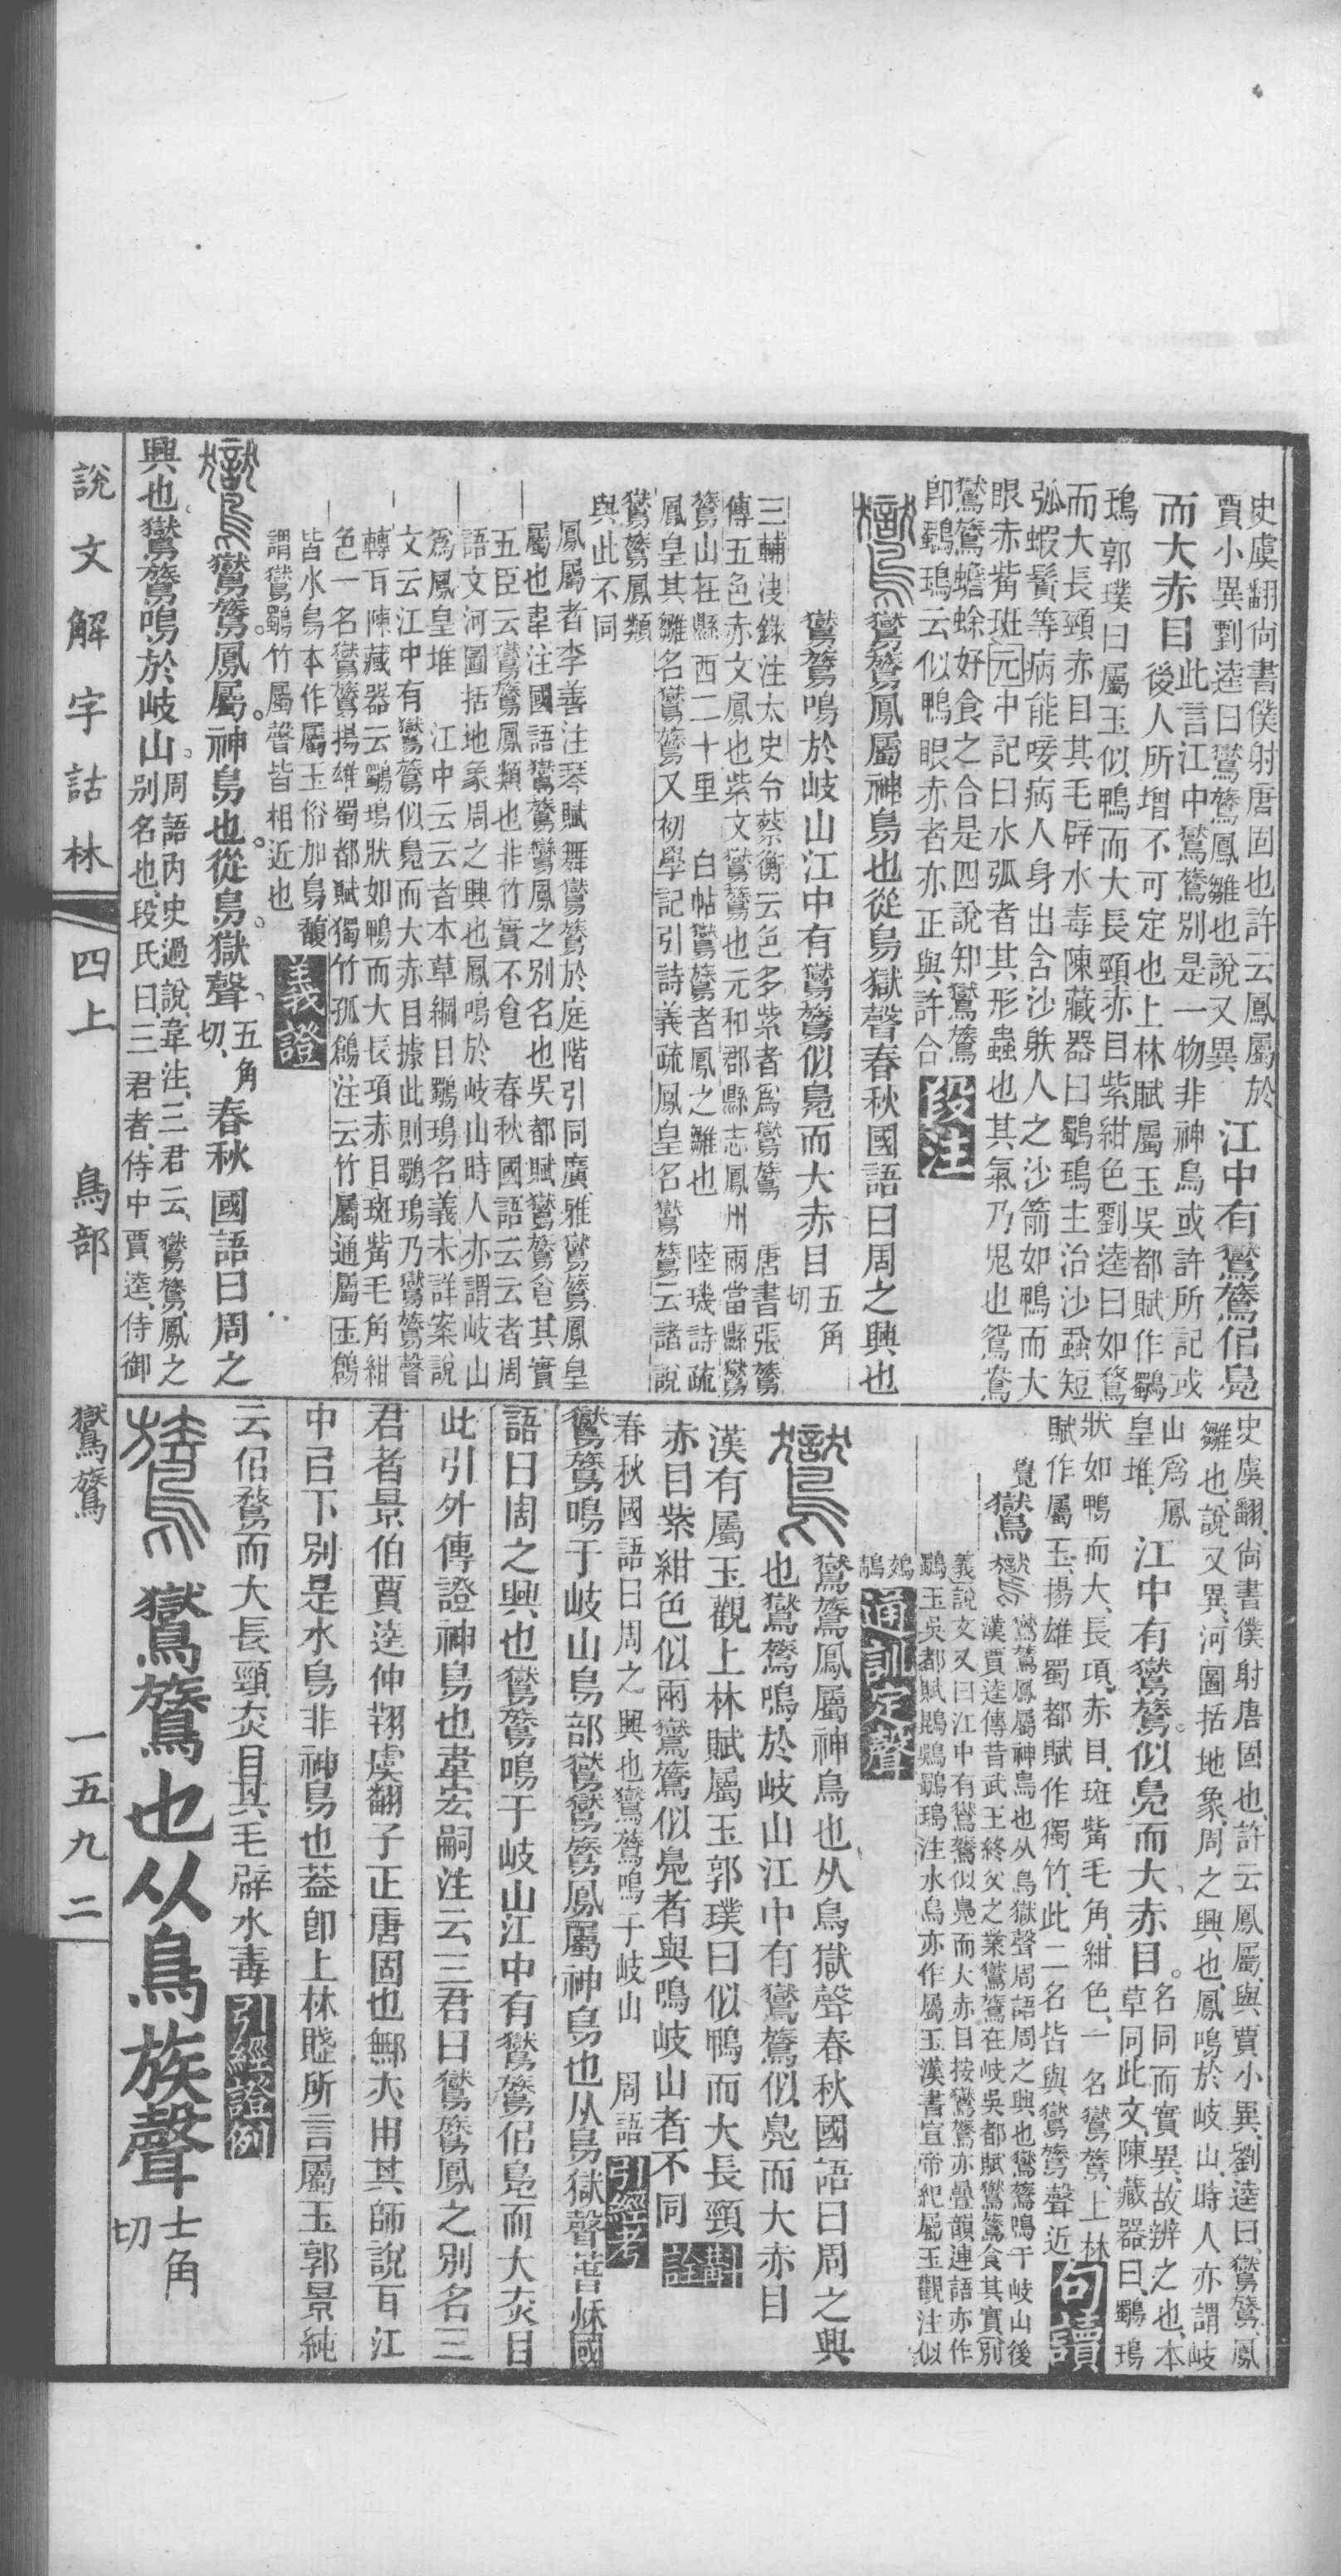 史虞翻尙書僕射唐固也許云鳳屬於
賈小異劉逵曰鸑鷟鳳雛也說又異
江中有鸑鷟侣鳧
而大赤目
此言江中鸑鷟別是一物非神鳥或許所記或
後人所增不可定也上林賦屬玉吳都賦作鸀
鳿郭璞曰屬玉似鴨而大長頸赤目紫紺色劉逵曰如鶩
而大長頸赤目其毛辟水毒陳藏器曰鸀鳿主治沙蝨短
弧蝦鬚等病能唼病人身出含沙躲人之沙箭如鴨而大
眼赤觜斑元中記曰水弧者其形蟲也其氣乃鬼也鴛鴦
鸑鷟蟾蜍好食之合是四說知鸑鷟
卽鸀鳿云似鴨眼赤者亦正與許合
段注
鸑鷟鳳屬神鳥也從鳥獄聲春秋國語曰周之興也
鸑鷟鳴於岐山江中有鸑鷟似鳧而大赤目
五角
切
三輔決錄注太史令蔡衡云色多紫者爲鸑鷟 唐書張鷟
傳五色赤文鳳也紫文鸑鷟也元和郡縣志鳳州兩當縣鸑
鷟山在縣西二十里 白帖鸑鷟者鳳之雛也 陸璣詩疏
鳳皇其雛名鸑鷟又初學記引詩義疏鳳皇名鸑鷟云諸說
鸑鷟鳳類
與此不同
鳳屬者李善注琴賦舞鸑鷟於庭階引同廣雅鸑鷟鳳皇
屬也韋注國語鸑鷟鸞鳳之別名也吳都賦鸑鷟食其實
五臣云鸑鷟鳳類也非竹實不食 春秋國語云云者周
語文河圖括地象周之興也鳳鳴於岐山時人亦謂岐山
爲鳳皇堆 江中云云者本草綱目鸀鳿名義未詳案說
文云江中有鸑鷟似鳧而大赤目據此則鸀鳿乃鸑鷟聲
轉耳陳藏器云鸀鳿狀如鴨而大長項赤目斑觜毛角紺
色一名鸑鷟揚雄蜀都賦獨竹孤鶬注云竹屬通屬玉鶬
皆水鳥本作屬玉俗加鳥馥
謂鸑鸀竹屬聲皆相近也
義證
鸑鷟鳳屬神鳥也從鳥獄聲
五角
切
春秋國語曰周之
興也鸑鷟鳴於岐山
周語內史過說韋注三君云鸑鷟鳳之
別名也段氏曰三君者侍中賈逵侍御
史虞翻尙書僕射唐固也許云鳳屬與賈小異劉逵曰鸑鷟鳳
雛也說又異河圖括地象周之興也鳳鳴於岐山時人亦謂岐
山爲鳳
皇堆
江中有鸑鷟似鳧而大赤目
名同而實異故辨之也本
草同此文陳藏器曰鸀鳿
狀如鴨而大長項赤目斑觜毛角紺色一名鸑鷟上林
賦作屬玉揚雄蜀都賦作獨竹此二名皆與鸑鷟聲近
句讀
覺鸑
鸑鷟鳳屬神鳥也从鳥獄聲周語周之興也鸑鷟鳴于岐山後
漢賈逵傳昔武王終父之業鸑鷟在岐吳都賦鸑鷟食其實別
義說文又曰江中有鸑鷟似鳧而大赤目按鸑鷟亦疊韻連語亦作
鸀玉吳都賦鸀鳿注水鳥亦作屬玉漢書宣帝紀屬玉觀注似
通訓定聲
鸑鷟鳳屬神鳥也从鳥獄聲春秋國語曰周之興
也鸑鷟鳴於岐山江中有鸑鷟似鳧而大赤目
漢有屬玉觀上林賦屬玉郭璞曰似鴨而大長頸
赤目紫紺色似兩鸑鷟似鳧者與鳴岐山者不同
斠詮
春秋國語曰周之興也鸑鷟鳴于岐山 周語
引經考
鸑鷟鳴于岐山鳥部鸑鸑鷟鳳屬神鳥也从鳥獄聲萅秌國
語曰周之興也鸑鷟鳴于岐山江中有鸑鷟侣鳧而大赤目
此引外傳證神鳥也韋宏嗣注云三君曰鸑鷟鳳之別名三
君者景伯賈逵仲翔虞翻子正唐固也鄦亦用其師說耳江
中㠯下別是水鳥非神鳥也葢卽上林賦所言屬玉郭景純
云侣鶩而大長頸赤目其毛辟水毒
引經證例
鸑鷟也从鳥族聲
士角
切
說文解字詁林 四上 鳥部 鸑鷟 一五九二